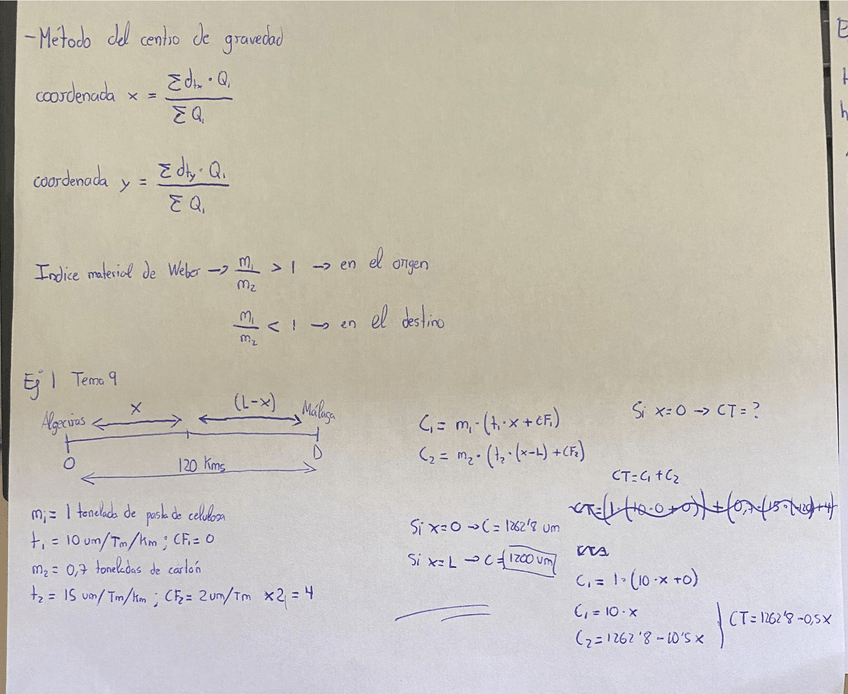 - Método del centro de gravedad
coordenada x = Σ dₜₓ · Qᵢ / Σ Qᵢ
coordenada y = Σ dₜy · Qᵢ / Σ Qᵢ
Indice material de Weber → m₁/m₂ > 1 → en el origen
m₁/m₂ < 1 → en el destino
Ej 1 Tema 9
Algeciras x (L-x) Málaga
O D
120 Kms
m₁ = 1 tonelada de pasta de celulosa
t₁ = 10 um/Tm/Km ; CF₁ = 0
m₂ = 0,7 toneladas de cartón
t₂ = 15 um/Tm/km ; CF₂ = 2um/Tm x2 = 4
C₁ = m₁ · (t₁ · x + CF₁)
C₂ = m₂ · (t₂ · (x-L) + CF₂)
Si x=0 → C = 1262'8 um
Si x=L → C = 1200 um
Si x=0 → CT = ?
CT = C₁ + C₂
CT = (1 · (10 · 0 + 0)) + (0,7 · (15 · (-120) + 4)
C₁ = 1 · (10 · x + 0)
C₁ = 10 · x
C₂ = 1262'8 - 10'5 x
CT = 1262'8 - 0,5x
E
h